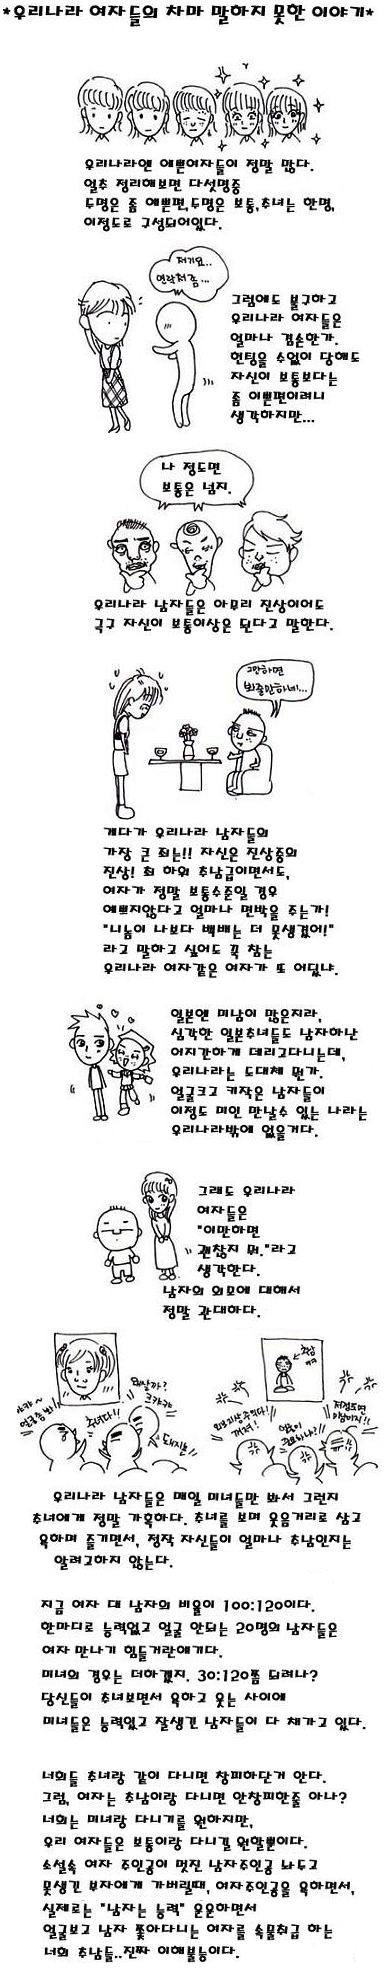 *우리나라 여자들의 차마 말하지 못한 이야기*
우리나라엔 예쁜여자들이 정말 많다.
얼추 정리해보면 다섯명중
두명은 좀 예쁜편,두명은 보통,추녀는 한명,
이정도로 구성되어있다.
저기요..
연락처좀...
그럼에도 불구하고
우리나라 여자들은
얼마나 겸손한가.
헌팅을 수없이 당해도
자신이 보통보다는
좀 이쁜편이려니
생각하지만...
나 정도면
보통은 넘지.
우리나라 남자들은 아무리 진상이어도
극구 자신이 보통이상은 된다고 말한다.
그만하면
봐줄만하네!...
게다가 우리나라 남자들의
가장 큰 죄는!! 자신은 진상중의
진상! 최 하위 추남급이면서도,
여자가 정말 보통수준일 경우
예쁘지않다고 얼마나 면박을 주는가!
"니놈이 나보다 백배는 더 못생겼어!"
라고 말하고 싶어도 꾹 참는
우리나라 여자같은 여자가 또 어딨냐.
일본엔 미남이 많은지라,
심각한 일본추녀들도 남자하난
어지간하게 데리고다니는데,
우리나라는 도대체 뭔가.
얼굴크고 키작은 남자들이
이정도 미인 만날수 있는 나라는
우리나라밖에 없을거다.
그래도 우리나라
여자들은
"이만하면
괜찮지 뭐."라고
생각한다.
남자의 외모에 대해서
정말 관대하다.
추녀다!!
추남
ㅋㅋ
우리나라 남자들은 매일 미녀들만 봐서 그런지
추녀에게 정말 가혹하다. 추녀를 보며 웃음거리로 삼고
욕하며 즐기면서, 정작 자신들이 얼마나 추남인지는
알려고하지 않는다.
지금 여자 대 남자의 비율이 100:120이다.
한마디로 능력없고 얼굴 안되는 20명의 남자들은
여자 만나기 힘들거란얘기다.
미녀의 경우는 더하겠지. 30:120쯤 되려나?
당신들이 추녀보면서 욕하고 웃는 사이에
미녀들은 능력있고 잘생긴 남자들이 다 채가고 있다.
너희들 추녀랑 같이 다니면 창피하단거 안다.
그럼, 여자는 추남이랑 다니면 안창피한줄 아나?
너희는 미녀랑 다니기를 원하지만,
우리 여자들은 보통이랑 다니길 원할뿐이다.
소설속 여자 주인공이 멋진 남자주인공 놔두고
못생긴 부자에게 가버릴때, 여자주인공을 욕하면서,
실제로는 "남자는 능력" 운운하면서
얼굴보고 남자 쫓아다니는 여자를 속물취급 하는
너희 추남들..진짜 이해불능이다.